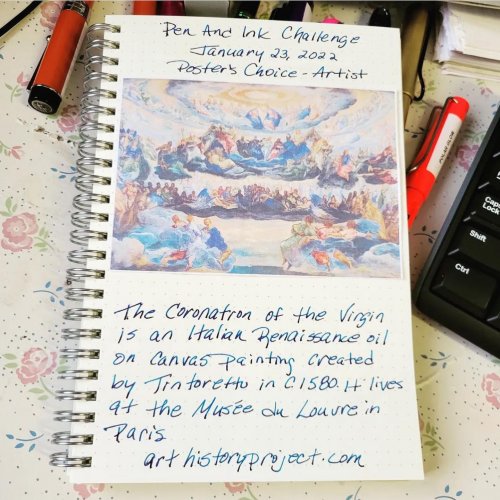 Pen And Ink Challenge
January 23, 2022
Poster's Choice - Artist
The Coronation of the Virgin
is an Italian Renaissance oil
on canvas painting created
by Tintoretto in C1580. It lives
at the Musée du Louvre in
Paris
art historyproject.com
Caps Lock
Shift
Ctrl